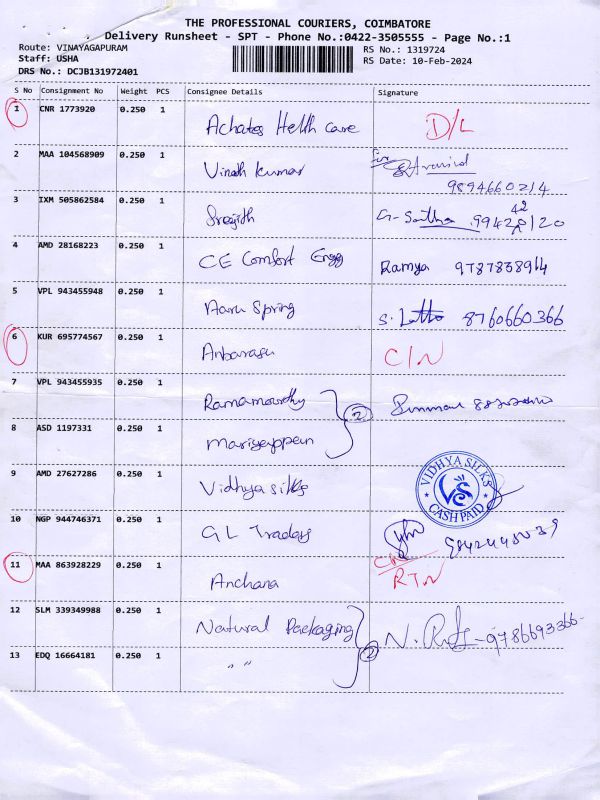 THE PROFESSIONAL COURIERS, COIMBATORE
Delivery Runsheet - SPT - Phone No.:0422-3505555 - Page No.:1
Route: VINAYAGAPURAM RS No.: 1319724
Staff: USHA RS Date: 10-Feb-2024
DRS No.: DCJB131972401
S No Consignment No Weight PCS Consignee Details Signature
1 CNR 1773920 0.250 1 Achates Helth Care D/L
2 MAA 104568909 0.250 1 Vinoth Kumar
9894660214
3 IXM 505862584 0.250 1 Sreejith
4 AMD 28168223 0.250 1 CE Comfort Engg Ramya 9787838914
5 VPL 943455948 0.250 1 Aaru Spring 8760660366
6 KUR 695774567 0.250 1 Anbarasu C/N
7 VPL 943455935 0.250 1 Ramamourthy
2
8 ASD 1197331 0.250 1 Mariyappan
9 AMD 27627286 0.250 1 Vidhya silks VIDHYA SILKS VS CASH PAID
10 NGP 944746371 0.250 1 GL Traders
11 MAA 863928229 0.250 1 Anchana RTN
12 SLM 339349988 0.250 1 Natural Packaging 9786693366
2
13 EDQ 16664181 0.250 1 " "